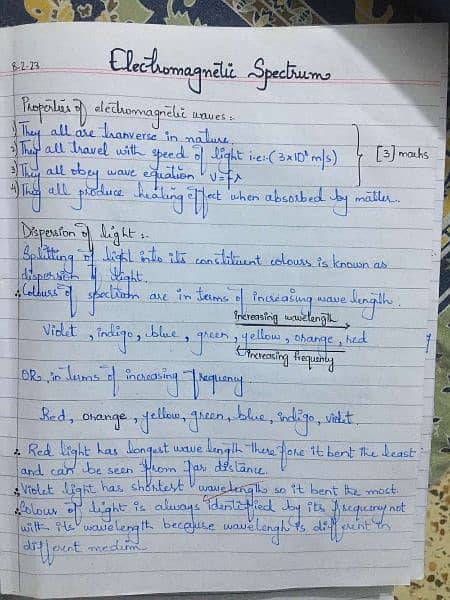 8-2-23
Electromagnetic Spectrum
Properties of electromagnetic waves:-
1) They all are tranverse in nature.
2) They all travel with speed of light i.e:- (3x10⁸ m/s)
3) They all obey wave equation V=fλ
[3] marks
4) They all produce heating effect when absorbed by matter..
Dispersion of light:-
Splitting of light into its constituent colours is known as
dispersion of light.
∴ Colours of spectrum are in terms of increasing wave length.
increasing wavelength
Violet, indigo, blue, green, yellow, orange, red
increasing frequency
OR, in terms of increasing frequency.
Red, orange, yellow, green, blue, indigo, violet.
∴ Red light has longest wave length therefore it bent the least
and can be seen from far distance.
∴ Violet light has shortest wavelength so it bent the most.
∴ Colour of light is always identified by its frequency not
with its wavelength because wavelengh is different in
different medium